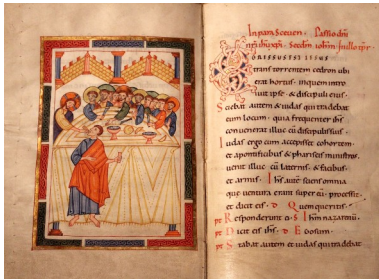 In parasceuen. Passio dñi
nri ihu xpi. Secdm iohm. In illo tpr
EGRESSUS EST IESUS
trans torrentem cedron ubi
erat hortus. inquem intro
iuit ipse & discipuli eius.
Sciebat autem & iudas qui tradebat
eum locum. quia frequenter ihs
conuenerat illuc cū discipulis suis.
Iudas ergo cum accepisset cohortem
et apontificibus & phariseis ministros.
uenit illuc cū laternis. & facibus
et armis. Ihs autē sciens omnia
que uentura erant super eū. processit.
et dicit eis. Quem queritis.
Responderunt ei. Ihm nazarenū.
Dicit eis ihs. Ego sum.
Stabat autem et iudas qui tradebat